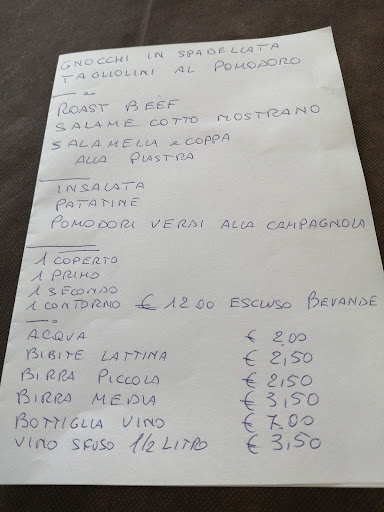 GNOCCHI IN SPADELLATA
TAGLIOLINI AL POMODORO
ROAST BEEF
SALAME COTTO NOSTRANO
SALAMELLA e COPPA
ALLA PIASTRA
INSALATA
PATATINE
POMODORI VERDI ALLA CAMPAGNOLA
1 COPERTO
1 PRIMO
1 SECONDO
1 CONTORNO € 12.00 ESCLUSO BEVANDE
ACQUA € 2,00
BIBITE LATTINA € 2,50
BIRRA PICCOLA € 2,50
BIRRA MEDIA € 3,50
BOTTIGLIA VINO € 7,00
VINO SFUSO 1/2 LITRO € 3,50